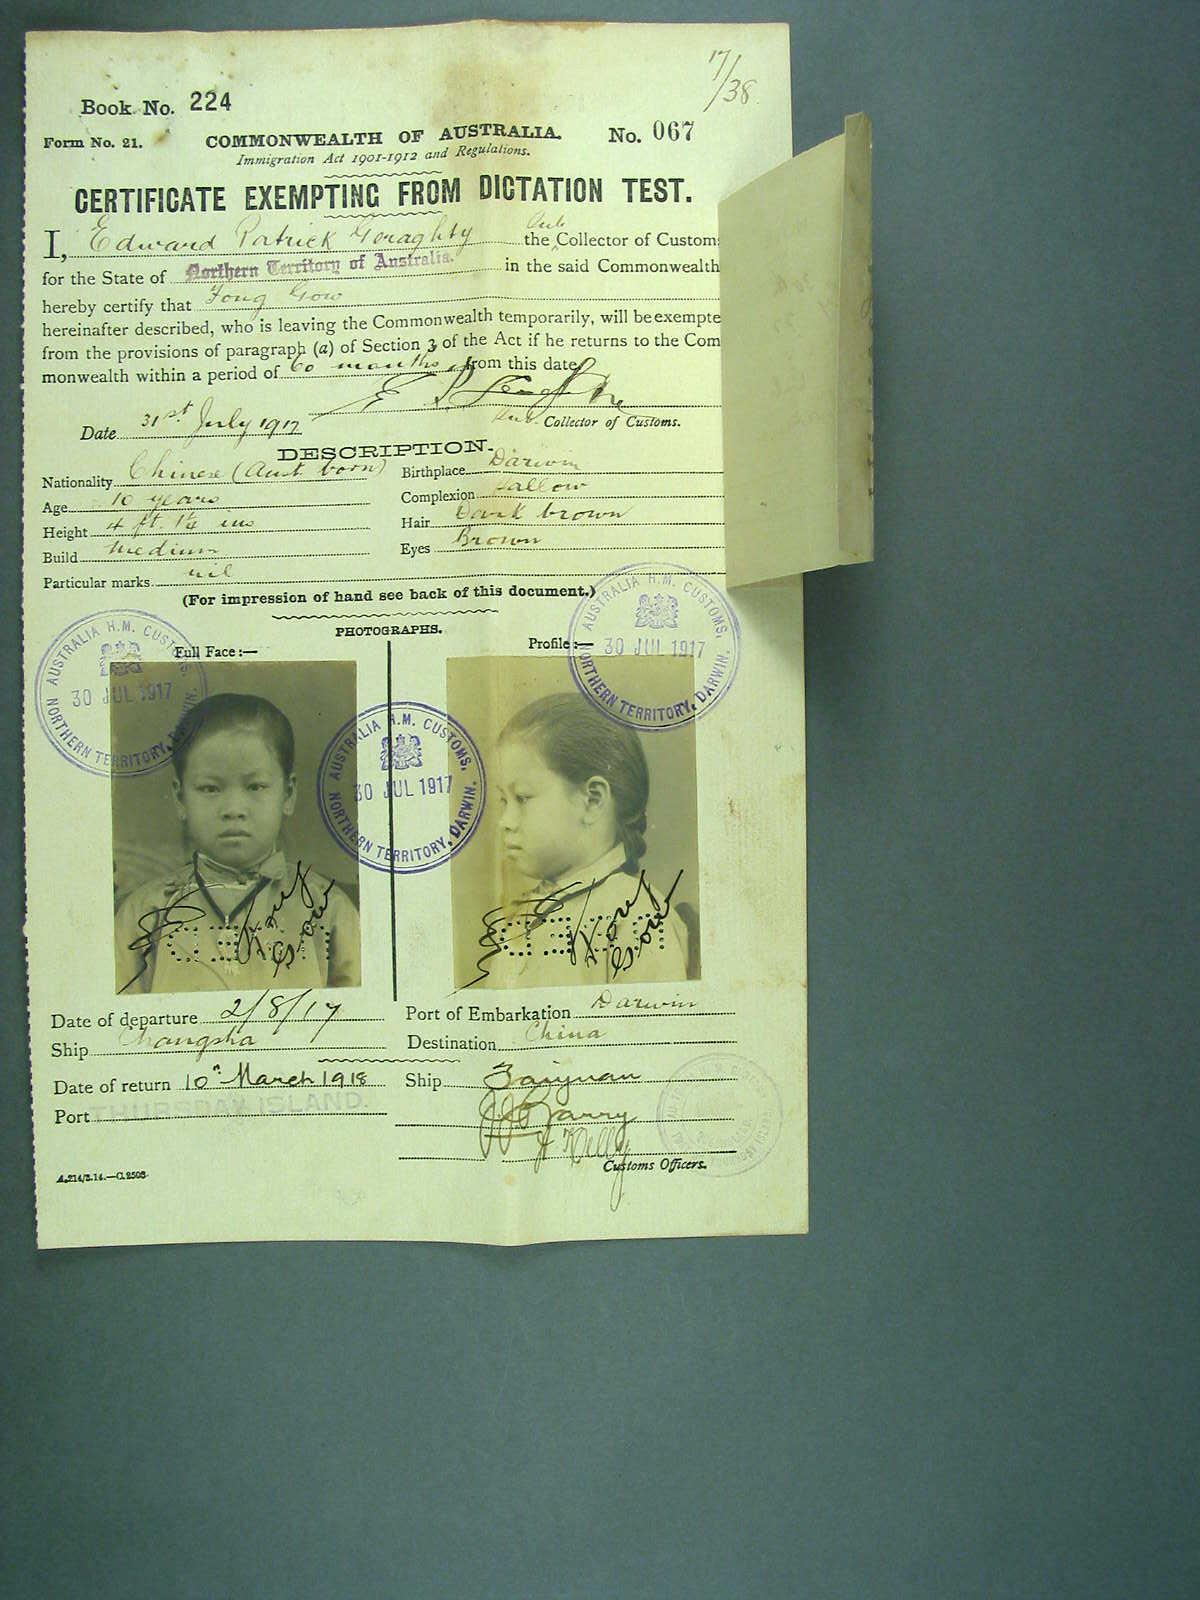 17/38
Book No. 224
Form No. 21. COMMONWEALTH OF AUSTRALIA. No. 067
Immigration Act 1901-1912 and Regulations.
CERTIFICATE EXEMPTING FROM DICTATION TEST.
I, Edward Patrick Geraghty the Sub Collector of Customs
for the State of Northern Territory of Australia. in the said Commonwealth
hereby certify that Fong Gow
hereinafter described, who is leaving the Commonwealth temporarily, will be exempte
from the provisions of paragraph (a) of Section 3 of the Act if he returns to the Com
monwealth within a period of 60 months from this date
Date 31st July 1917 Sub. Collector of Customs.
DESCRIPTION.
Nationality Chinese (Aust born) Birthplace Darwin
Age 10 years Complexion Sallow
Height 4 ft. 1¼ ins Hair Dark brown
Build medium Eyes Brown
Particular marks nil
(For impression of hand see back of this document.)
PHOTOGRAPHS.
Full Face:— Profile:—
AUSTRALIA H.M. CUSTOMS,
30 JUL 1917
NORTHERN TERRITORY, DARWIN.
AUSTRALIA H.M. CUSTOMS,
30 JUL 1917
NORTHERN TERRITORY, DARWIN.
AUSTRALIA H.M. CUSTOMS,
30 JUL 1917
NORTHERN TERRITORY, DARWIN.
Fong Gow
Fong Gow
Date of departure 2/8/17 Port of Embarkation Darwin
Ship Changsha Destination China
Date of return 10th March 1918 Ship Taiyuan
Port THURSDAY ISLAND.
Barry
Kelly
Customs Officers.
A.214/3.14.—C.2508